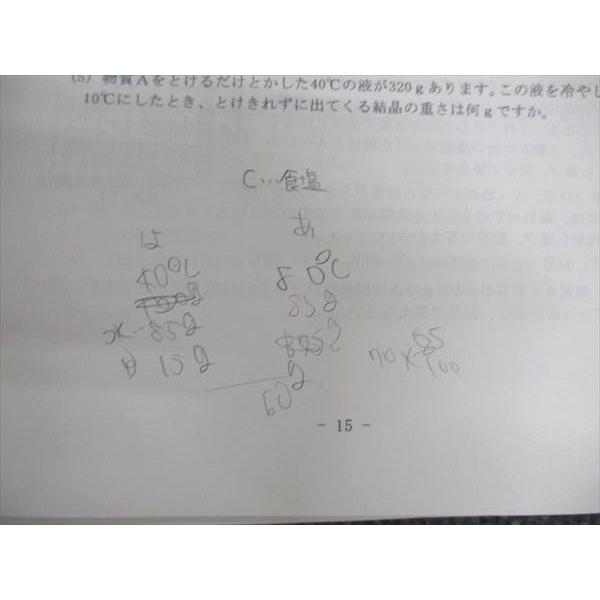 (5) 物質Aをとけるだけとかした40℃の液が320gあります。この液を冷やし
10℃にしたとき、とけきれずに出てくる結晶の重さは何gですか。
C…食塩
は あ
40℃ 80℃
85g
水…85g
15g
60g
70× 85/100
- 15 -